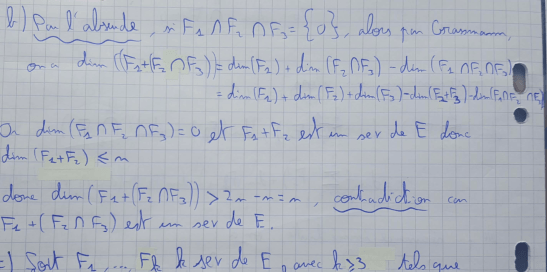 b) Par l'absurde, si F₁ ∩ F₂ ∩ F₃ = {0}, alors par Grassmann,
on a dim ((F₁+(F₂ ∩ F₃)) = dim(F₁) + dim(F₂∩F₃) - dim(F₁ ∩F₂∩F₃)
= dim(F₁) + dim(F₂) + dim(F₃) - dim(F₂+F₃) - dim(F₁∩F₂ ∩F₃)
Or dim(F₁ ∩ F₂ ∩ F₃) = 0 et F₁+F₂ est un sev de E donc
dim(F₁+F₂) ≤ n
donc dim(F₁ + (F₂ ∩ F₃)) > 2n - n = n, contradiction car
F₁ + (F₂ ∩ F₃) est un sev de E.
c) Soit F₁, ..., Fk k sev de E, avec k ≥ 3 tels que